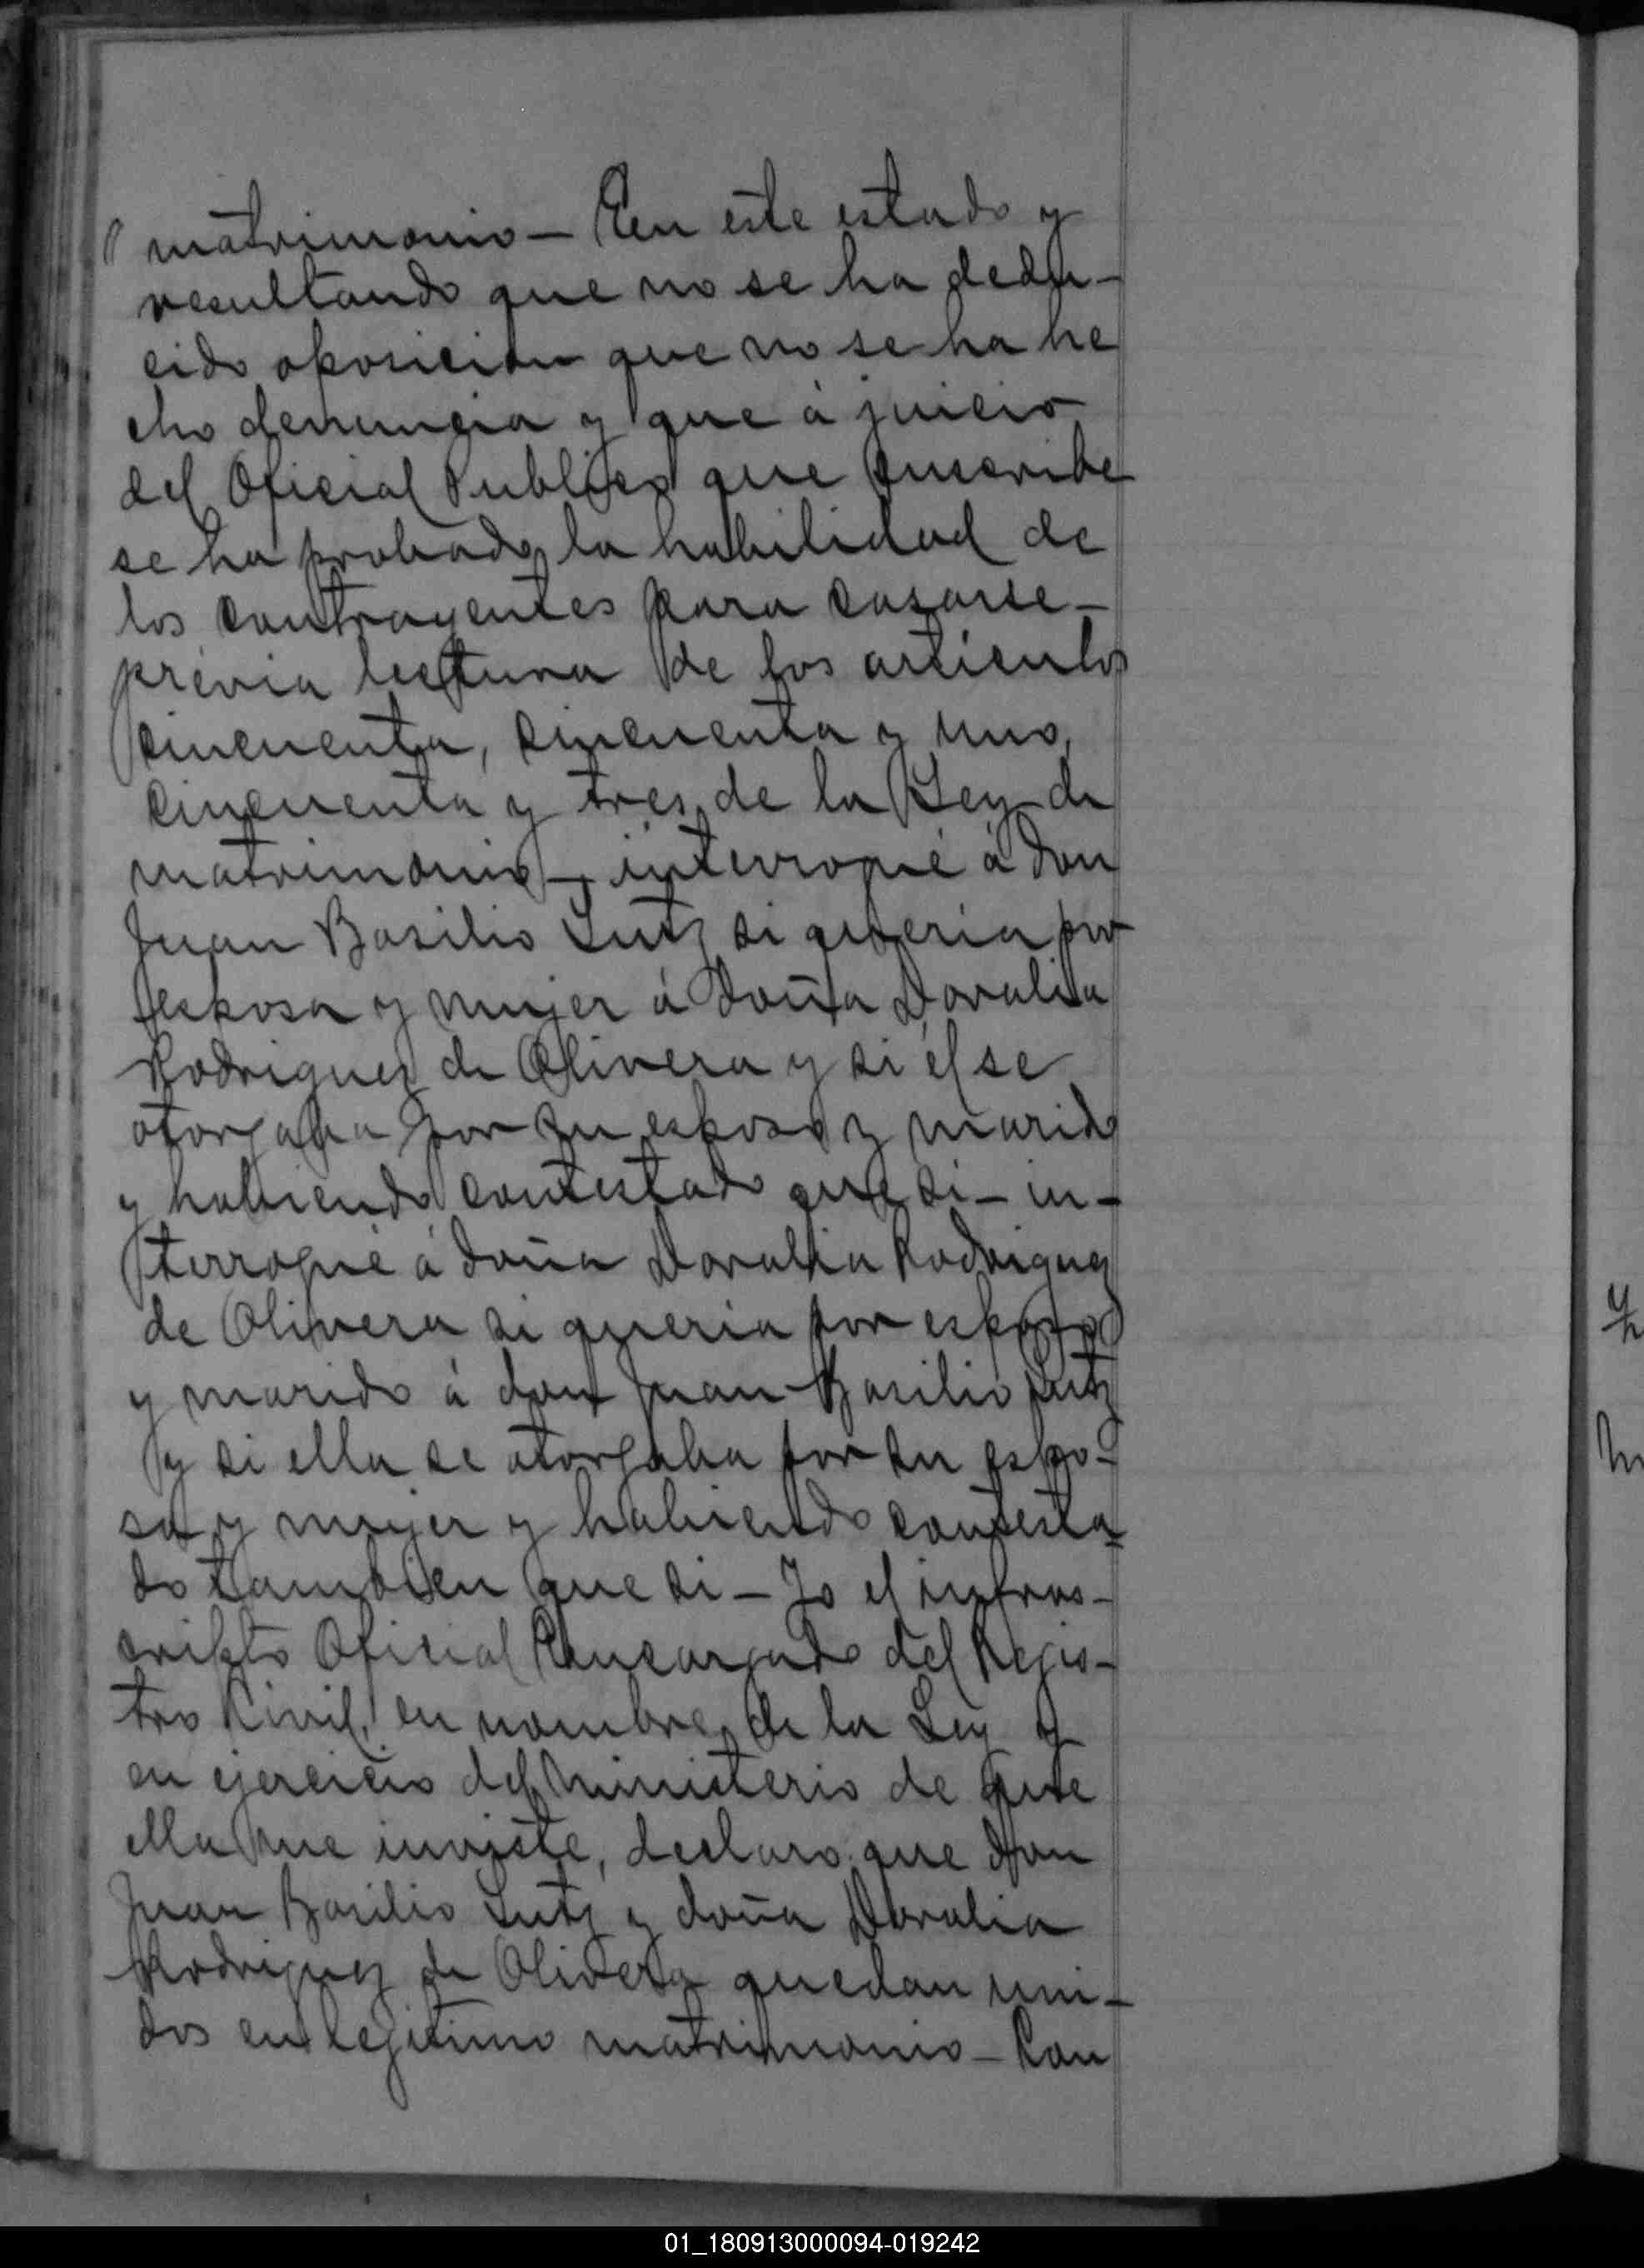 matrimonio — En este estado y
resultando que no se ha dedu-
cido oposicion que no se ha he
cho denuncia y que á juicio
del Oficial Publico que suscribe
se ha probado la habilidad de
los contrayentes para casarse —
prévia lectura de los artículos
cincuenta, cincuenta y uno,
cincuenta y tres, de la Ley de
matrimonio —, interrogué á don
Juan Basilio Lutz si queria por
esposa y mujer á doña Doralia
Rodriguez de Olivera y si él se
otorgaba por su esposo y marido
y habiendo contestado que si — in-
terrogué á doña Doralia Rodriguez
de Olivera si queria por esposo
y marido á don Juan Basilio Lutz
y si ella se otorgaba por su espo-
sa y mujer y habiendo contesta-
do tambien que si — Yo el infras-
cripto Oficial Encargado del Regis-
tro Civil, en nombre de la Ley y
en ejercicio del Ministerio de que
ella me inviste, declaro que don
Juan Basilio Lutz y doña Doralia
Rodriguez de Olivera quedan uni-
dos en legitimo matrimonio — Con
01_180913000094-019242